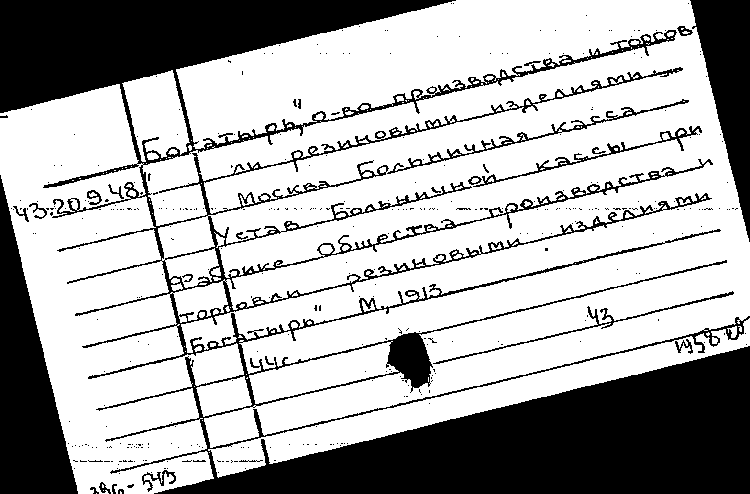 "Богатырь", о-во производства и торгов-
ли резиновыми изделиями.
43.20.9.48.
Москва Больничная касса
Устав Больничной кассы при
Фабрике Общества производства и
торговли резиновыми изделиями
"Богатырь" М., 1913
44с.
43
1958